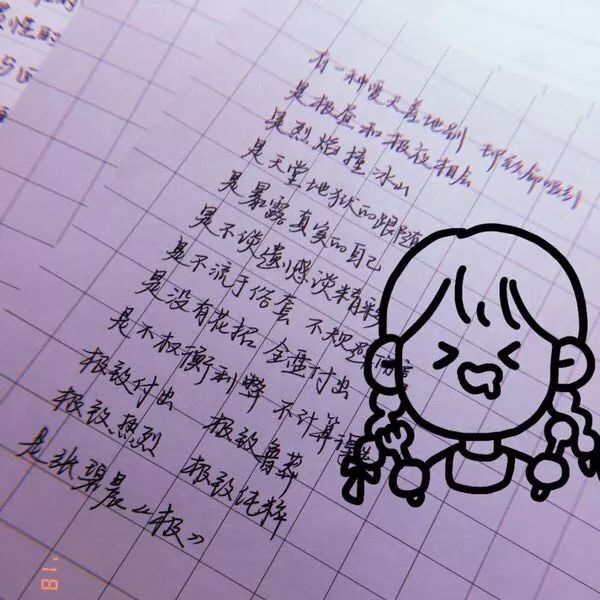 性的
有一种爱天差地别 却致命吸引
是极昼和极夜相合
是烈焰撞冰山
是天堂地狱的跟随
是暴露真实的自己
是不谈遗憾谈精彩
是不流于俗套 不规避
是没有花招 全盘付出
是不权衡利弊 不计算
极致付出 极致鲁莽
极致热烈 极致纯粹
是张碧晨《极》
'18